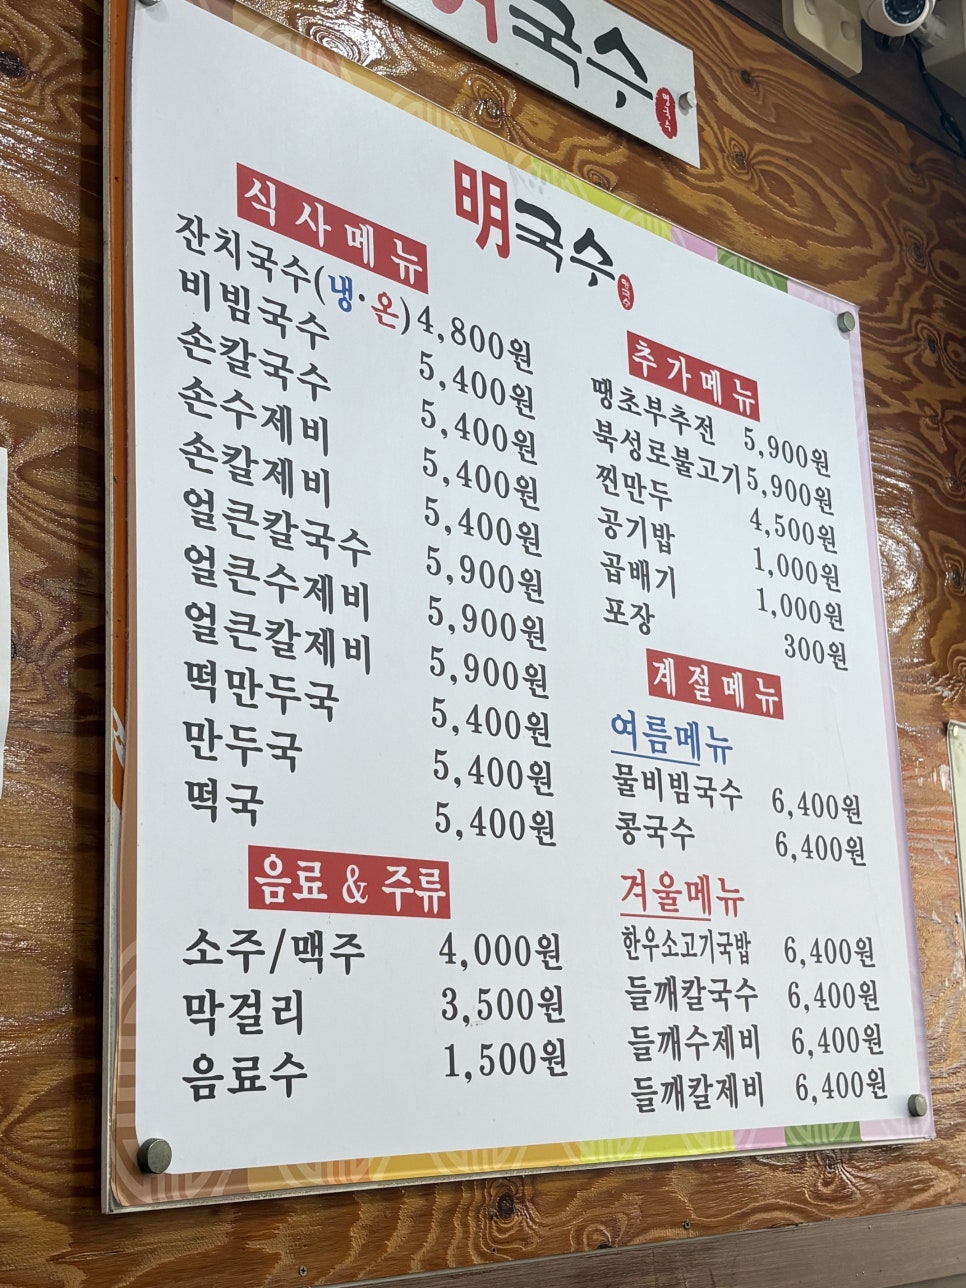 국수
明국수
명국수
식사메뉴
잔치국수(냉·온) 4,800원
비빔국수 5,400원
손칼국수 5,400원
손수제비 5,400원
손칼제비 5,400원
얼큰칼국수 5,900원
얼큰수제비 5,900원
얼큰칼제비 5,900원
떡만두국 5,400원
만두국 5,400원
떡국 5,400원
음료 & 주류
소주/맥주 4,000원
막걸리 3,500원
음료수 1,500원
추가메뉴
땡초부추전 5,900원
북성로불고기 5,900원
찐만두 4,500원
공기밥 1,000원
곱배기 1,000원
포장 300원
계절메뉴
여름메뉴
물비빔국수 6,400원
콩국수 6,400원
겨울메뉴
한우소고기국밥 6,400원
들깨칼국수 6,400원
들깨수제비 6,400원
들깨칼제비 6,400원